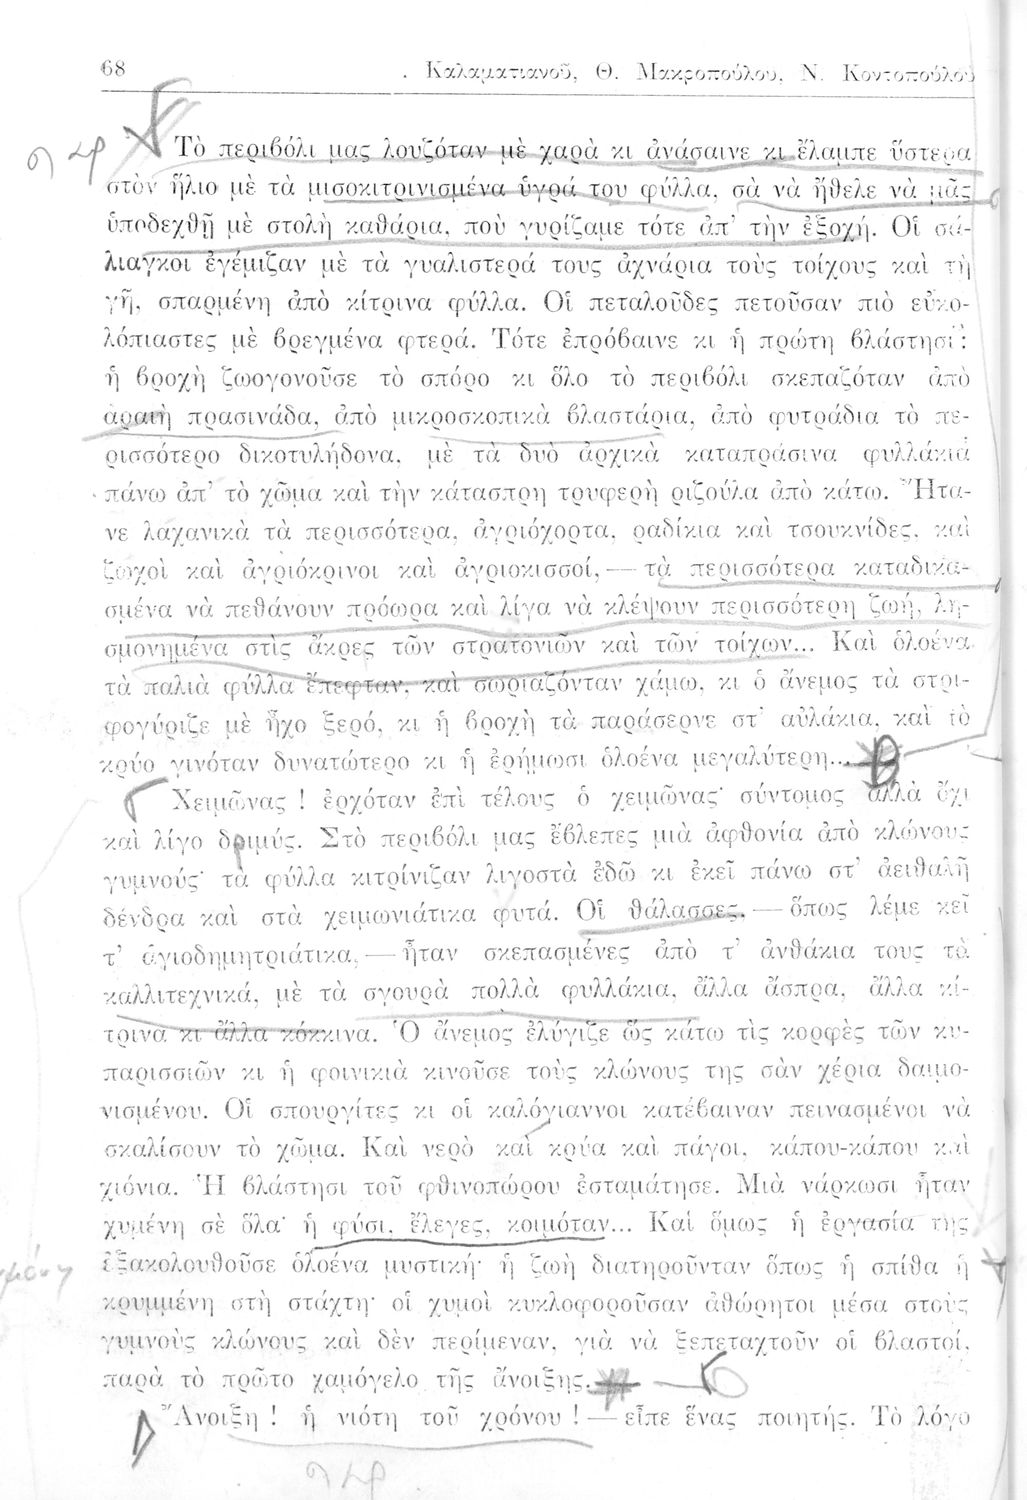 68 . Καλαματιανοῦ, Θ. Μακροπούλου, Ν. Κοντοπούλου
Τὸ περιβόλι μας λουζόταν μὲ χαρὰ κι ἀνάσαινε κι ἔλαμπε ὕστερα
στὸν ἥλιο μὲ τὰ μισοκιτρινισμένα ὑγρά του φύλλα, σὰ νὰ ἤθελε νὰ μᾶς
ὑποδεχθῇ μὲ στολὴ καθάρια, ποὺ γυρίζαμε τότε ἀπ' τὴν ἐξοχή. Οἱ σά-
λιαγκοι ἐγέμιζαν μὲ τὰ γυαλιστερά τους ἀχνάρια τοὺς τοίχους καὶ τὴ
γῆ, σπαρμένη ἀπὸ κίτρινα φύλλα. Οἱ πεταλοῦδες πετοῦσαν πιὸ εὐκο-
λόπιαστες μὲ βρεγμένα φτερά. Τότε ἐπρόβαινε κι ἡ πρώτη βλάστησι:
ἡ βροχὴ ζωογονοῦσε τὸ σπόρο κι ὅλο τὸ περιβόλι σκεπαζόταν ἀπὸ
ἀραιὴ πρασινάδα, ἀπὸ μικροσκοπικὰ βλαστάρια, ἀπὸ φυτράδια τὸ πε-
ρισσότερο δικοτυλήδονα, μὲ τὰ δυὸ ἀρχικὰ καταπράσινα φυλλάκια
πάνω ἀπ' τὸ χῶμα καὶ τὴν κάτασπρη τρυφερὴ ριζούλα ἀπὸ κάτω. Ἤτα-
νε λαχανικὰ τὰ περισσότερα, ἀγριόχορτα, ραδίκια καὶ τσουκνίδες, καὶ
ζωχοὶ καὶ ἀγριόκρινοι καὶ ἀγριοκισσοί,— τὰ περισσότερα καταδικα-
σμένα νὰ πεθάνουν πρόωρα καὶ λίγα νὰ κλέψουν περισσότερη ζωή, λη-
σμονημένα στὶς ἄκρες τῶν στρατονιῶν καὶ τῶν τοίχων... Καὶ ὁλοένα
τὰ παλιὰ φύλλα ἔπεφταν, καὶ σωριαζόνταν χάμω, κι ὁ ἄνεμος τὰ στρι-
φογύριζε μὲ ἦχο ξερό, κι ἡ βροχὴ τὰ παράσερνε στ' αὐλάκια, καὶ τὸ
κρύο γινόταν δυνατώτερο κι ἡ ἐρήμωσι ὁλοένα μεγαλύτερη...
Χειμῶνας ! ἐρχόταν ἐπὶ τέλους ὁ χειμῶνας· σύντομος ἀλλὰ ὄχι
καὶ λίγο δριμύς. Στὸ περιβόλι μας ἔβλεπες μιὰ ἀφθονία ἀπὸ κλώνους
γυμνούς· τὰ φύλλα κιτρίνιζαν λιγοστὰ ἐδῶ κι ἐκεῖ πάνω στ' ἀειθαλῆ
δένδρα καὶ στὰ χειμωνιάτικα φυτά. Οἱ θάλασσες,— ὅπως λέμε κεῖ
τ' ἁγιοδημητριάτικα,— ἦταν σκεπασμένες ἀπὸ τ' ἀνθάκια τους τὰ
καλλιτεχνικά, μὲ τὰ σγουρὰ πολλὰ φυλλάκια, ἄλλα ἄσπρα, ἄλλα κί-
τρινα κι ἄλλα κόκκινα. Ὁ ἄνεμος ἐλύγιζε ὣς κάτω τὶς κορφὲς τῶν κυ-
παρισσιῶν κι ἡ φοινικιὰ κινοῦσε τοὺς κλώνους της σὰν χέρια δαιμο-
νισμένου. Οἱ σπουργίτες κι οἱ καλόγιαννοι κατέβαιναν πεινασμένοι νὰ
σκαλίσουν τὸ χῶμα. Καὶ νερὸ καὶ κρύα καὶ πάγοι, κάπου-κάπου καὶ
χιόνια. Ἡ βλάστησι τοῦ φθινοπώρου ἐσταμάτησε. Μιὰ νάρκωσι ἦταν
χυμένη σὲ ὅλα· ἡ φύσι, ἔλεγες, κοιμόταν... Καὶ ὅμως ἡ ἐργασία της
ἐξακολουθοῦσε ὁλοένα μυστική· ἡ ζωὴ διατηροῦνταν ὅπως ἡ σπίθα ἡ
κρυμμένη στὴ στάχτη· οἱ χυμοὶ κυκλοφοροῦσαν ἀθώρητοι μέσα στοὺς
γυμνοὺς κλώνους καὶ δὲν περίμεναν, γιὰ νὰ ξεπεταχτοῦν οἱ βλαστοί,
παρὰ τὸ πρῶτο χαμόγελο τῆς ἄνοιξης.
Ἄνοιξη ! ἡ νιότη τοῦ χρόνου ! — εἶπε ἕνας ποιητής. Τὸ λόγο